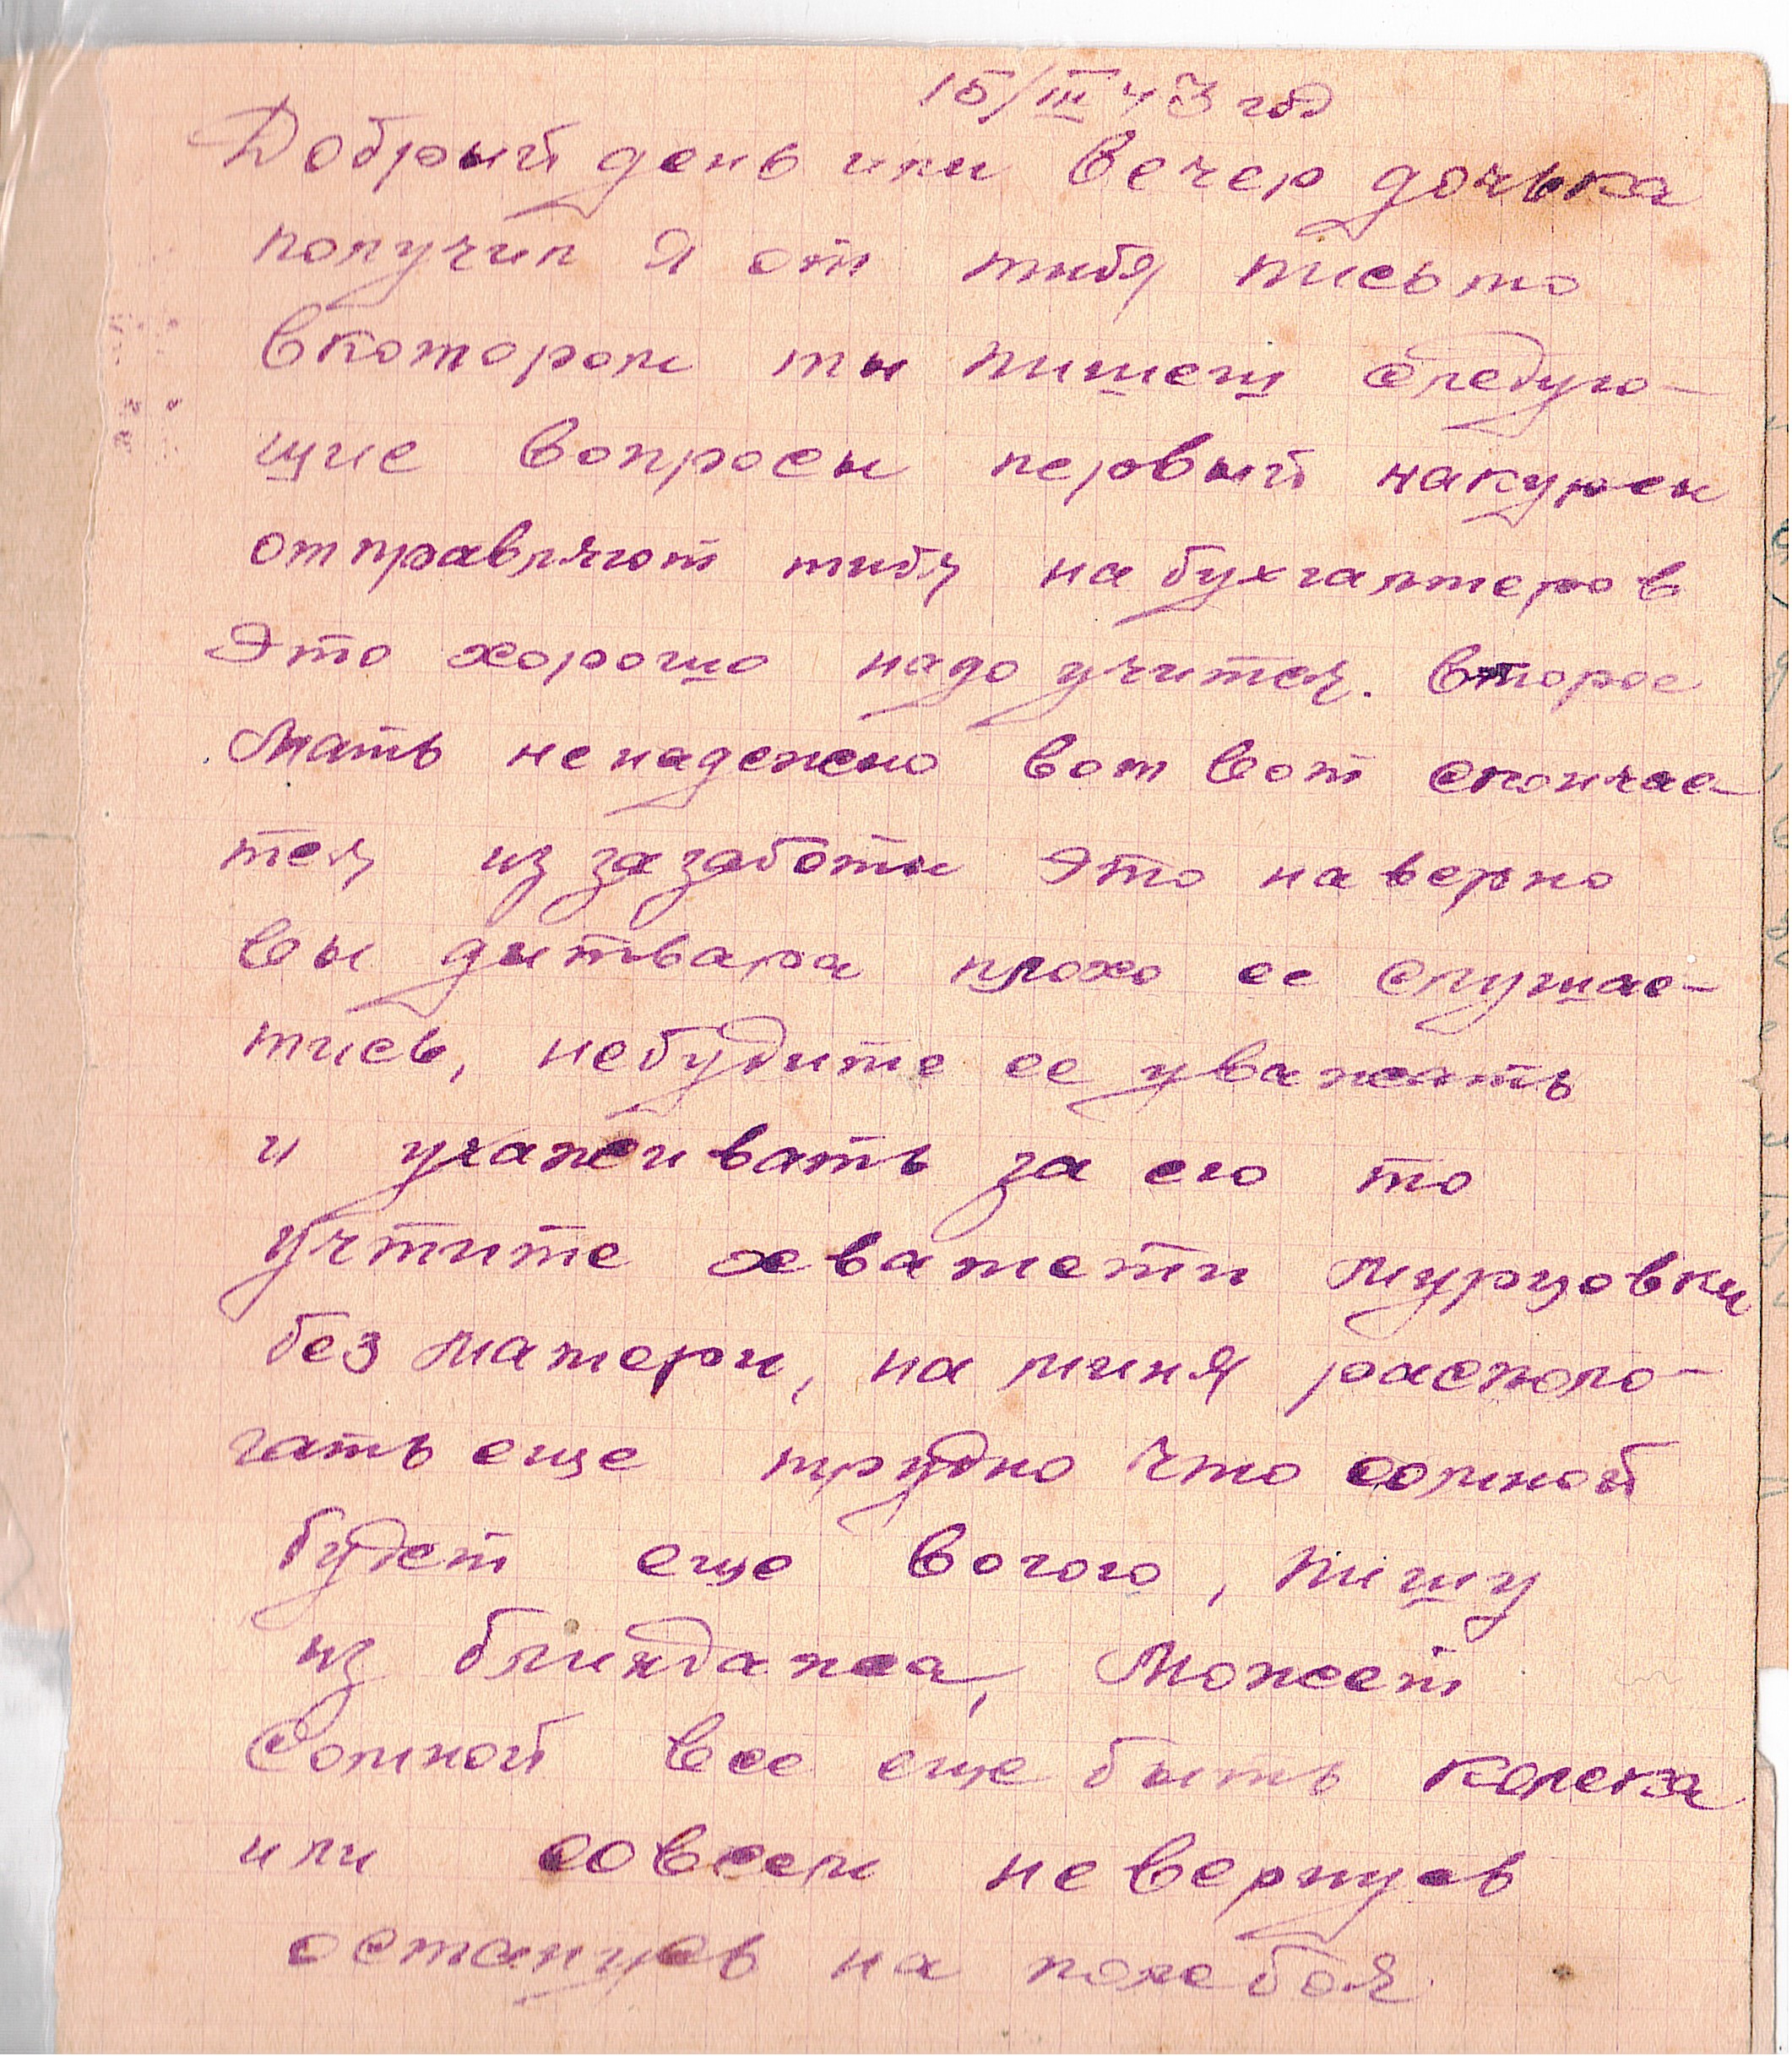 15/III 43 год
Добрый день или вечер дочька
получил я от тибя письмо
вкотором ты пишеш следую-
щие вопросы первый накурсы
отправляют тибя на бухгалтеров
Это хорошо надо учится. Второе
Мать ненадежно вот вот скончае-
тся из за заботы это наверно
вы дитвара плохо ее слушае-
тись, небудите ее уважать
и ухаживать за ею то
учтите хватети мурцовки
без матери, на миня располо-
гать еще трудно что сомной
будет еще вогого, пишу
из блиндажа, Может
Сомной все еще быть колека
или совсем невернусь
останусь на полебоя